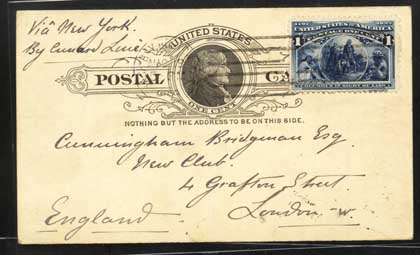 Viâ New York.
By Cunard Line
UNITED STATES
POSTAL CARD
ONE CENT
1492 1892
UNITED STATES OF AMERICA
POSTAGE ONE CENT
1 1
COLUMBUS IN SIGHT OF LAND
NOTHING BUT THE ADDRESS TO BE ON THIS SIDE.
Cunningham Bridgman Esq
New Club.
4 Grafton Street
London. W.
England.